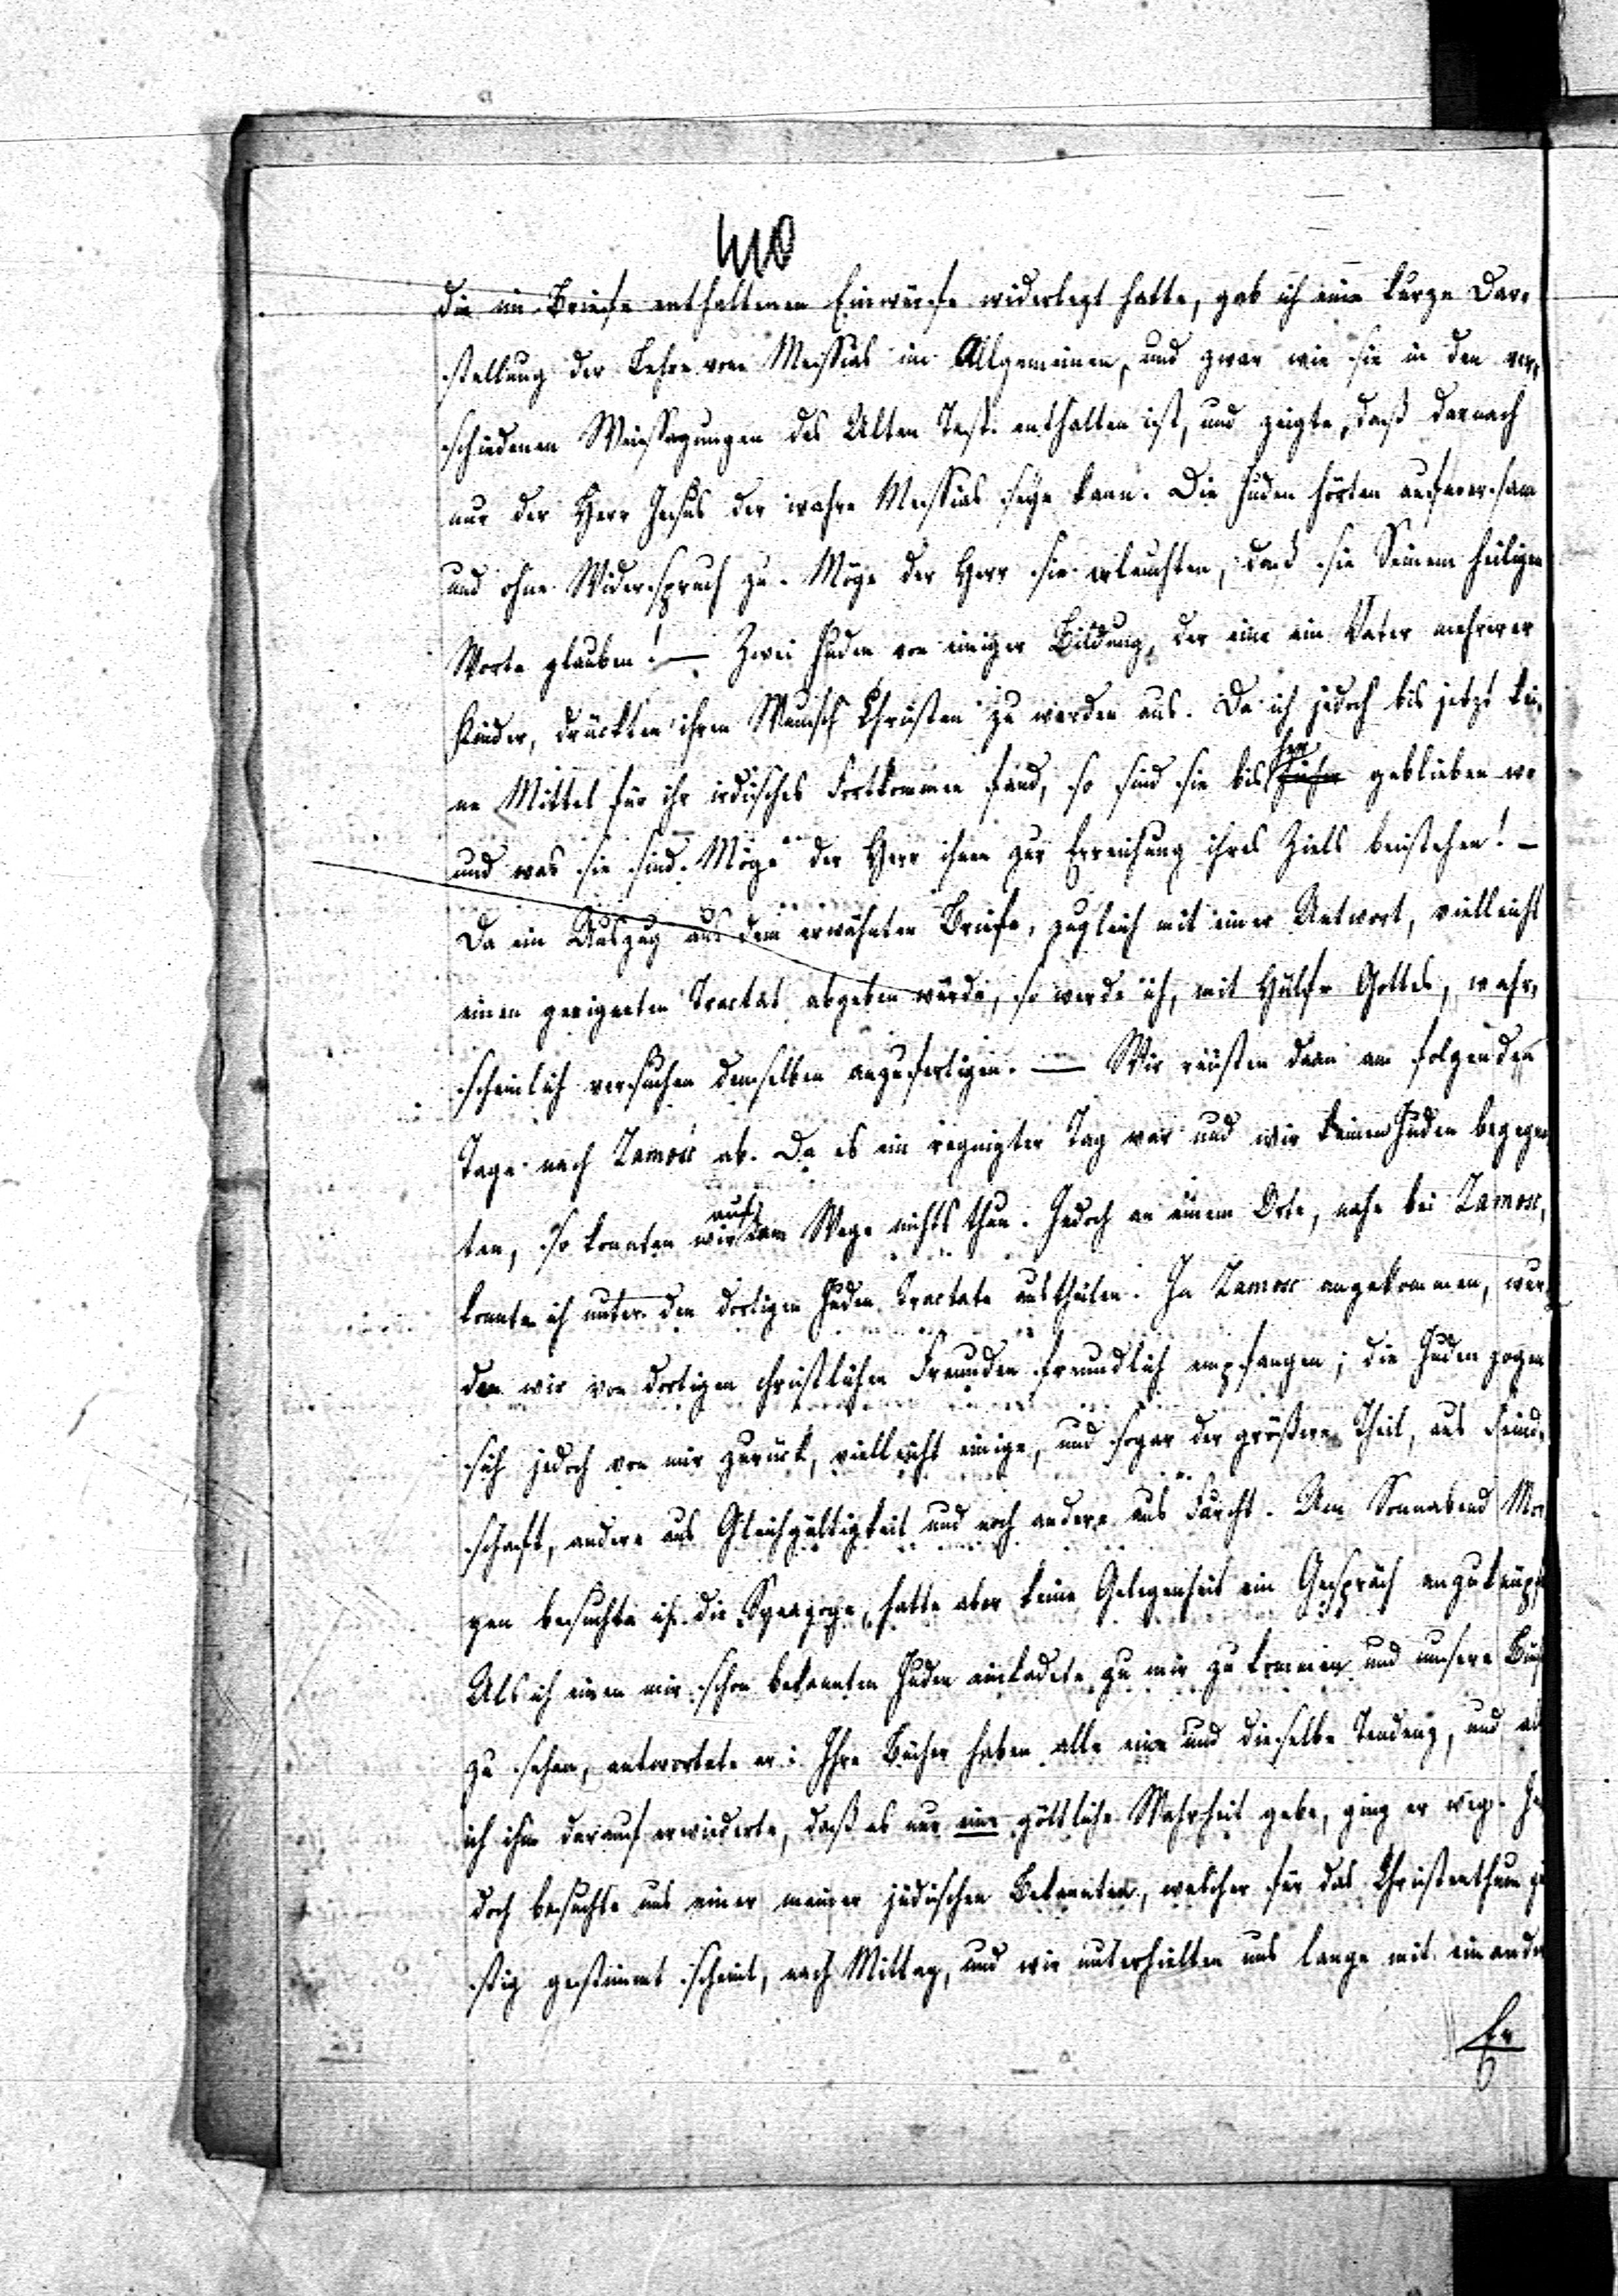 410
die im Briefe enthaltenen Einwürfe widerlegt hatte, gab ich eine kurze Dar-
stellung der Lehre vom Messias im Allgemeinen, und zwar wie sie in den ver-
schiedenen Weissagungen des Alten Test. enthalten ist, und zeigte, daß darnach
nur der Herr Jesus der wahre Messias seyn kann. Die Juden hörten aufmerksam
und ohne Widerspruch zu. Möge der Herr sie erleuchten, daß sie Seinem heiligen
Worte glauben! — Zwei Juden von einiger Bildung, der eine ein Vater mehrerer
Kinder, drückten ihren Wunsch Christen zu werden aus. Da ich jedoch bis jetzt kei-
ne Mittel für ihr irdisches Fortkommen fand, so sind sie bis her geblieben wo
und was sie sind. Möge der Herr ihnen zur Erreichung ihres Ziels beistehen! —
Da ein Auszug aus dem erwähnten Briefe, zugleich mit einer Antwort, vielleicht
einen geeigneten Tractat abgeben würde, so werde ich, mit Hülfe Gottes, wahr-
scheinlich versuchen denselben anzufertigen. — Wir reisten dann am folgenden
Tage nach Zamość ab. Da es ein regnigter Tag war und wir keinen Juden begegne
ten, so konnten wir auf dem Wege nichts thun. Jedoch an einem Orte, nahe bei Zamosc,
konnte ich unter den dortigen Juden Tractate austheilen. In Zamosc angekommen, wur-
den wir von dortigen christlichen Freunden freundlich empfangen; die Juden zogen
sich jedoch von mir zurück, vielleicht einige, und sogar der größere Theil, aus Feind-
schaft, andere aus Gleichgültigkeit und noch andere aus Furcht. Am Sonnabend Mor
gen besuchte ich die Synagoge, hatte aber keine Gelegenheit ein Gespräch anzuknüpf
Als ich einen mir schon bekannten Juden einladete zu mir zu kommen und unsere Büch
zu sehen, antwortete er: Ihre Bücher haben alle eine und dieselbe Tendenz, und als
ich ihm darauf erwiederte, daß es nur eine göttliche Wahrheit gebe, ging er weg. Je
doch besuchte uns einer meiner jüdischen Bekannten, welcher für das Christenthum gün
stig gestimmt scheint, nach Mittag, und wir unterhielten uns lange mit einander
Er